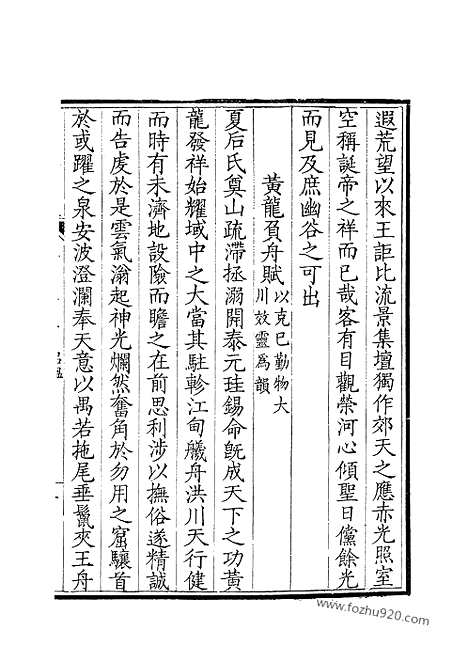 遐荒望以來王詎比流景集壇獨作郊天之應赤光照室
空稱誕帝之祥而已哉客有目觀榮河心傾聖日儻餘光
而見及庶幽谷之可出
黃龍負舟賦以克己勤物大
川效靈爲韻
夏后氏奠山疏滯拯溺開泰元珪錫命旣成天下之功黃
龍發祥始耀域中之大當其駐軫江甸艤舟洪川天行健
而時有未濟地設險而瞻之在前思利涉以撫俗遂精誠
而告虔於是雲氣滃起神光爛然奮角於勿用之窟驤首
於或躍之泉安波澄瀾奉天意以禺若拖尾垂鬣夾王舟
www.fozhu920.com